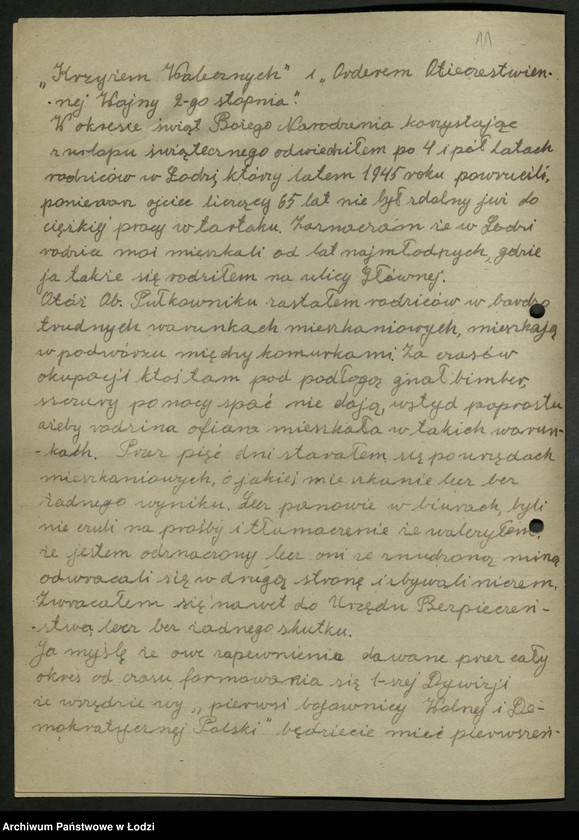 11
„Krzyżem Walecznych" i „Orderem Otieczestwien-
-nej Wojny 2-go stopnia".
W okresie świąt Bożego Narodzenia korzystając
z urlopu świątecznego odwiedziłem po 4 i pół latach
rodziców w Łodzi, którzy latem 1945 roku powrucili,
ponieważ ojciec liczący 65 lat nie był zdolny już do
ciężkiej pracy w tartaku. Zaznaczam że w Łodzi
rodzice moi mieszkali od lat najmłodszych, gdzie
ja także się rodziłem na ulicy Głównej.
Otóż Ob. Pułkowniku zastałem rodziców w bardzo
trudnych warunkach mieszkaniowych, mieszkają
w podwórzu między komurkami. Za czasów
okupacji ktoś tam pod podłogą gnał bimber,
szczury po nocy spać nie dają, wstyd poprostu
ażeby rodzina oficera mieszkała w takich warun-
-kach. Przez pięć dni starałem się po urzędach
mieszkaniowych, o jakieś mieszkanie lecz bez
żadnego wyniku. Lecz panowie w biurach, byli
nie czuli na prośby i tłumaczenie że walczyłem,
że jestem odznaczony lecz oni ze znudzoną miną
odwracali się w drugą stronę i zbywali niczem.
Zwracałem się nawet do Urzędu Bezpieczeń-
-stwa, lecz bez żadnego skutku.
Ja myślę że owe zapewnienia dawane przez cały
okres od czasu formowania się 1-szej Dywizji
że wszędzie wy „pierwsi bojownicy Wolnej i De-
mokratycznej Polski" będziecie mieć pierwszeń-
Archiwum Państwowe w Łodzi